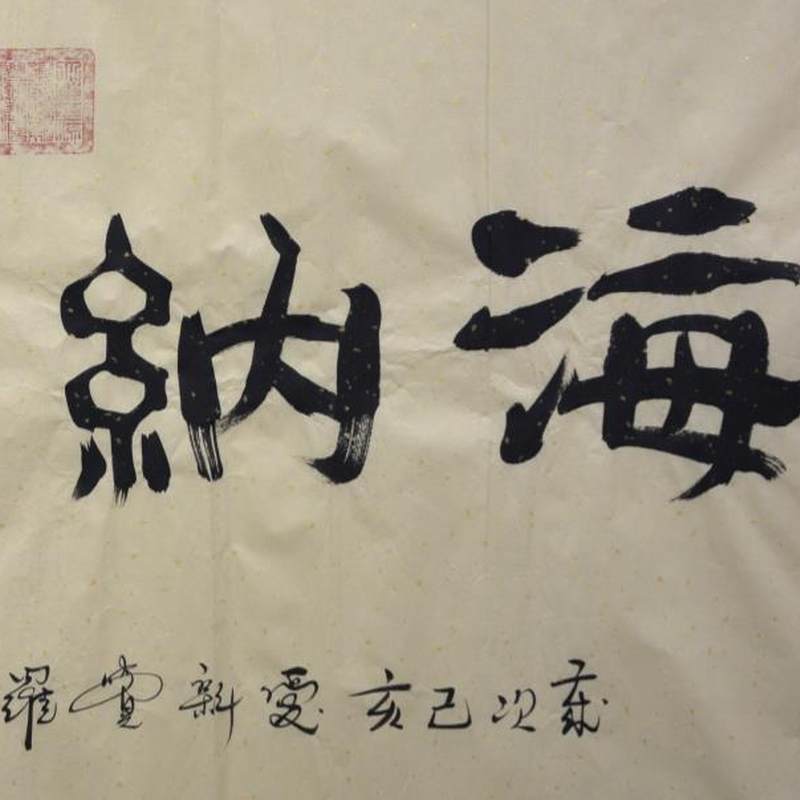 海納
歲次己亥愛新覺羅